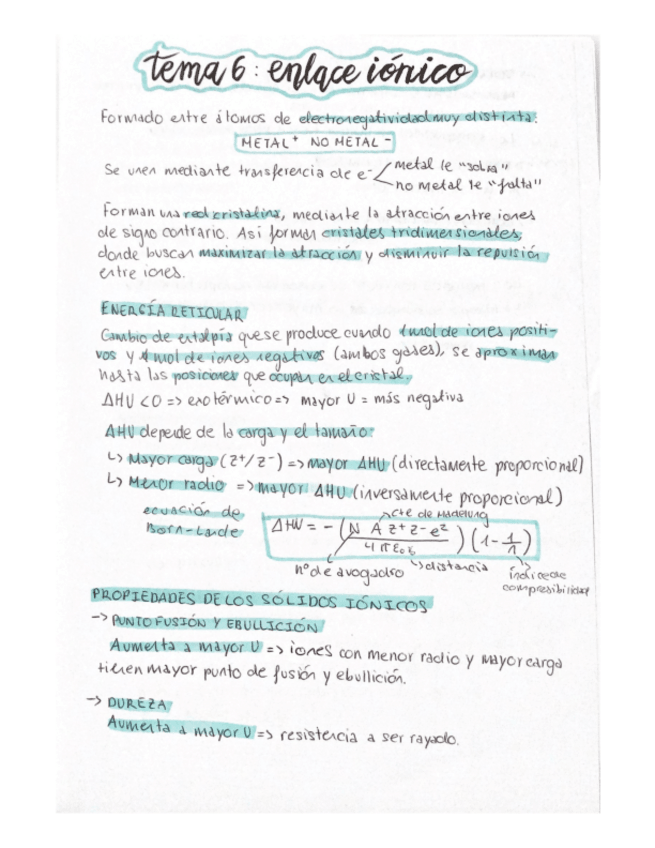 tema 6: enlace iónico
Formado entre átomos de electronegatividad muy distinta:
METAL⁺ NO METAL⁻
Se unen mediante transferencia de e⁻ metal le "sobra"
no metal le "falta"
Forman una red cristalina, mediante la atracción entre iones
de signo contrario. Así forman cristales tridimensionales,
donde buscan maximizar la atracción y disminuir la repulsión
entre iones.
ENERGÍA RETICULAR
Cambio de entalpía que se produce cuando 1 mol de iones positi-
vos y 1 mol de iones negativos (ambos gases), se aproximan
hasta las posiciones que ocupan en el cristal.
ΔHU <0 => exotérmico => mayor U = más negativa
ΔHU depende de la carga y el tamaño:
↳ Mayor carga (z⁺/z⁻) => mayor ΔHU (directamente proporcional)
↳ Menor radio => mayor ΔHU (inversamente proporcional)
ecuación de
Born-Lande
cte de Madelung
ΔHU = - (N A z⁺ z⁻ e² / 4πε₀) (1 - 1/n)
nº de avogadro
distancia
índice de
compresibilidad
PROPIEDADES DE LOS SÓLIDOS IÓNICOS
-> PUNTO FUSIÓN Y EBULLICIÓN
Aumenta a mayor U => iones con menor radio y mayor carga
tienen mayor punto de fusión y ebullición.
-> DUREZA
Aumenta a mayor U => resistencia a ser rayado.